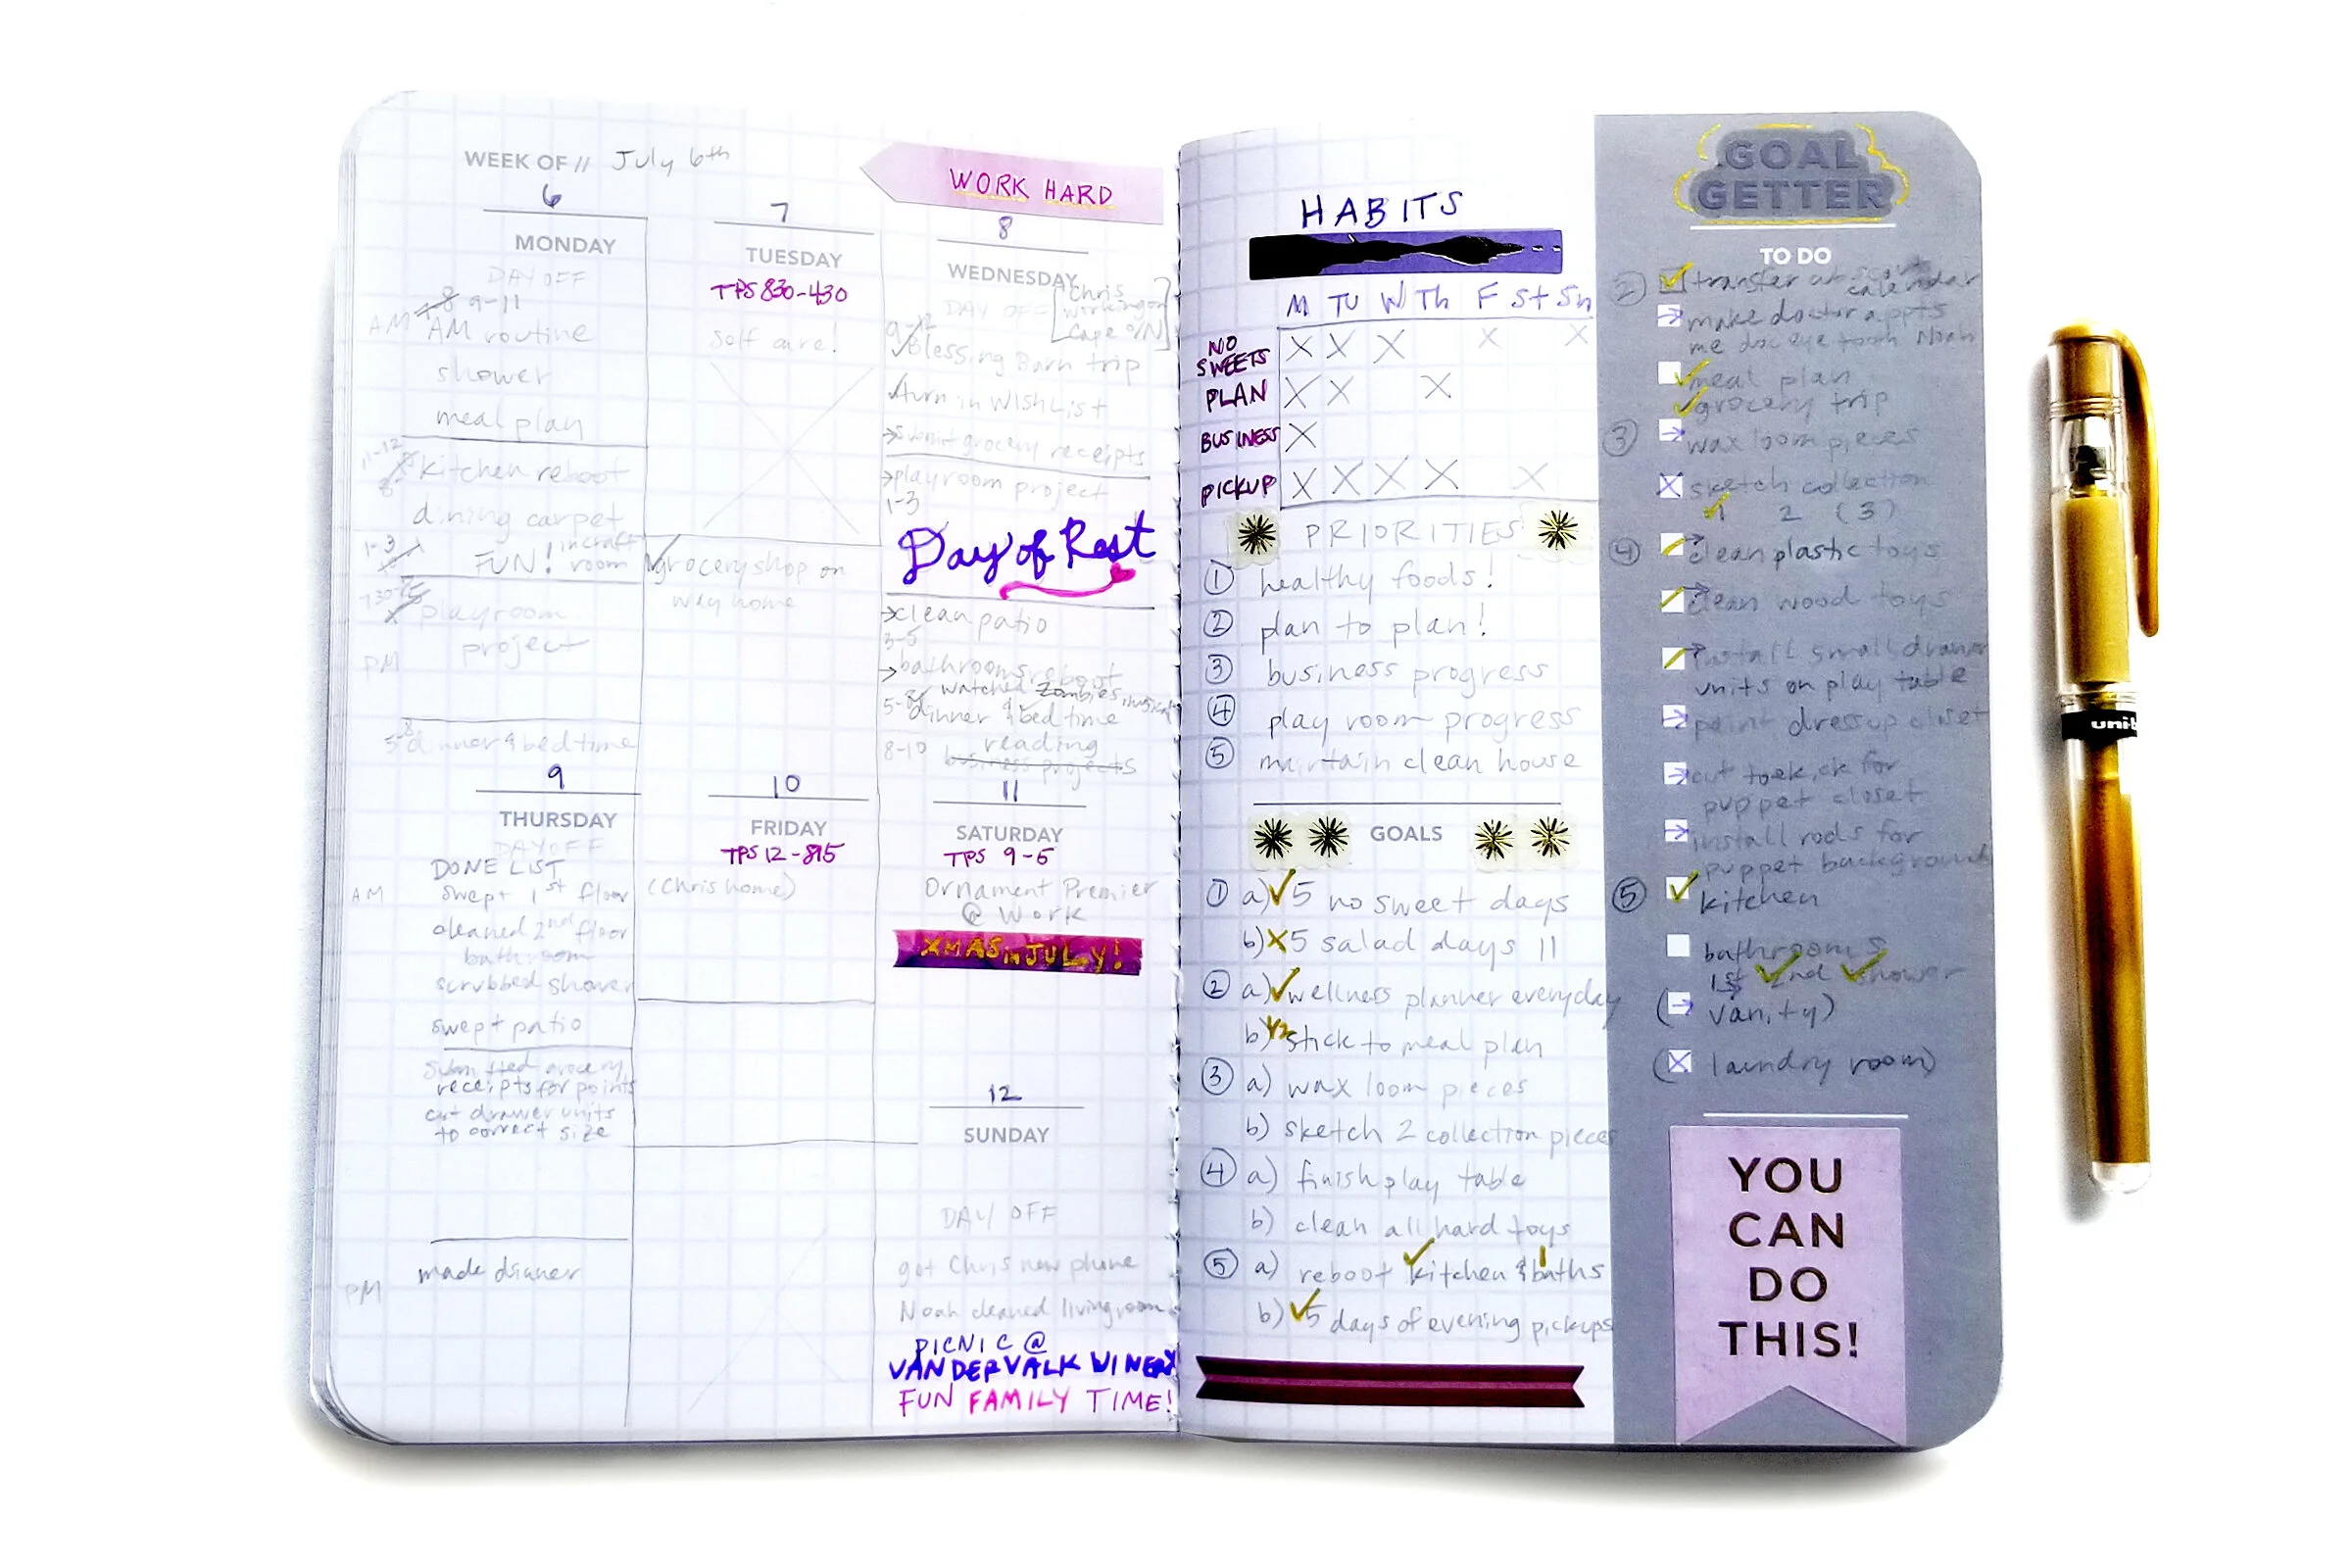 WEEK OF // July 6th
WORK HARD
6
MONDAY
DAY OFF
9-11
AM
AM routine
shower
meal plan
11-12
kitchen reboot
dining carpet
1-3
FUN! in craft
room
playroom
project
PM
5-8
dinner & bedtime
7
TUESDAY
TPS 830-430
self care!
grocery shop on
way home
8
WEDNESDAY
DAY OFF
Chris
working on
Cape O/N
9-12
Blessing Barn trip
turn in WISH List
→ submit grocery receipts
→ playroom project
1-3
Day of Rest
→ clean patio
3-5
→ bathrooms reboot
watched Zombies musical
5-8
dinner & bed time
reading
8-10
business projects
9
THURSDAY
DAY OFF
DONE LIST
AM
swept 1st floor
cleaned 2nd floor
bathroom
scrubbed shower
swept patio
submitted grocery
receipts for points
cut drawer units
to correct size
made dinner
PM
10
FRIDAY
TPS 12-815
(Chris home)
11
SATURDAY
TPS 9-5
Ornament Premier
@ Work
XMAS in JULY!
12
SUNDAY
DAY OFF
got Chris new phone
Noah cleaned livingroom
PICNIC @
VANDERVALK WINERY
FUN FAMILY TIME!
HABITS
M TU W Th F St Sn
NO
SWEETS X X X X X
PLAN X X X
BUSINESS X
PICKUP X X X X X
PRIORITIES
① healthy foods!
② plan to plan!
③ business progress
④ play room progress
⑤ maintain clean house
GOALS
① a) ✓ 5 no sweet days
b) x 5 salad days ||
② a) ✓ wellness planner everyday
b) 1/2 stick to meal plan
③ a) wax loom pieces
b) sketch 2 collection pieces
④ a) finish play table
b) clean all hard toys
⑤ a) reboot kitchen & baths
b) ✓ 5 days of evening pickups
GOAL
GETTER
TO DO
② transfer
calendar
make doctor appts
me doc eye tooth Noah
meal plan
grocery trip
③ wax loom pieces
sketch collection
1 2 (3)
④ clean plastic toys
clean wood toys
install small drawer
units on play table
paint dressup closet
cut toekick for
puppet closet
install rods for
puppet background
⑤ kitchen
bathrooms
1st 2nd shower
(→ vanity)
(X laundry room)
YOU
CAN
DO
THIS!